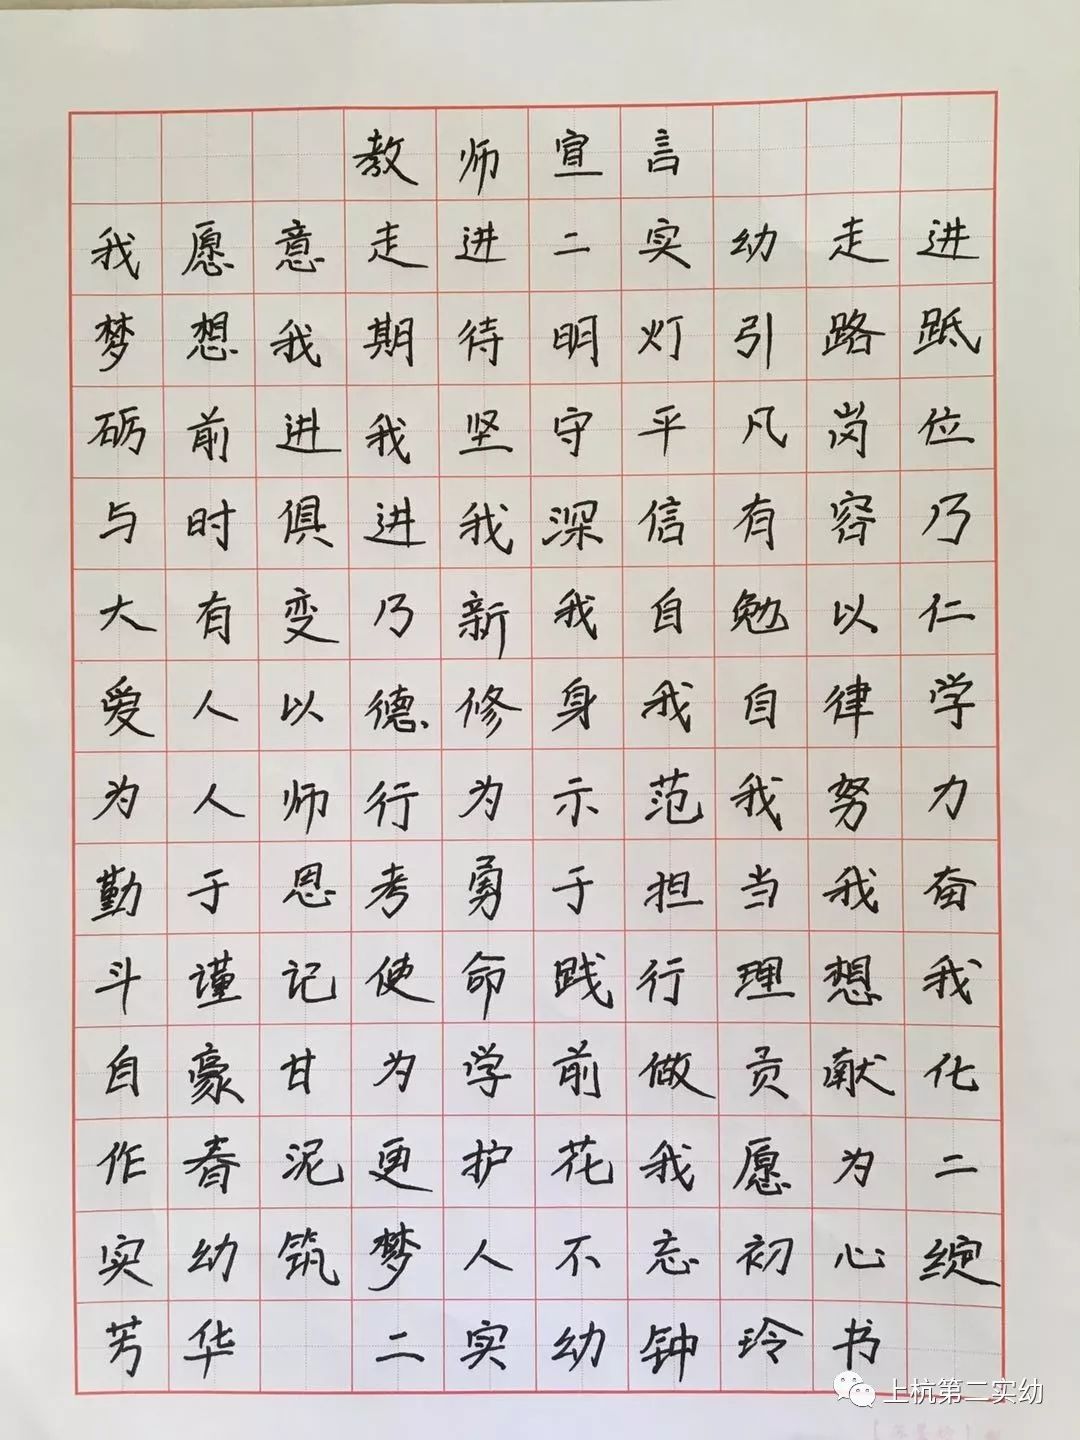 教师宣言
我愿意走进二实幼走进
梦想我期待明灯引路砥
砺前进我坚守平凡岗位
与时俱进我深信有容乃
大有变乃新我自勉以仁
爱人以德修身我自律学
为人师行为示范我努力
勤于思考勇于担当我奋
斗谨记使命践行理想我
自豪甘为学前做贡献化
作春泥更护花我愿为二
实幼筑梦人不忘初心绽
芳华 二实幼钟玲书
上杭第二实幼